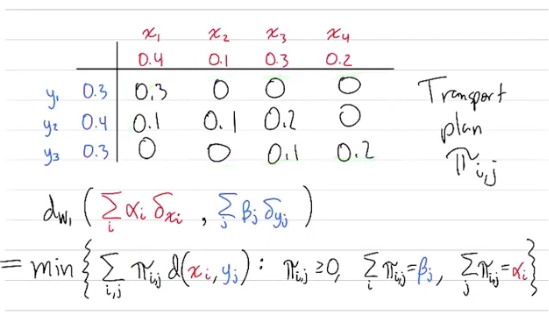 x₁ x₂ x₃ x₄
0.4 0.1 0.3 0.2
y₁ 0.3 0.3 0 0 0
y₂ 0.4 0.1 0.1 0.2 0
y₃ 0.3 0 0 0.1 0.2
Transport
plan
π_{i,j}
d_{W₁} ( ∑_i α_i δ_{x_i} , ∑_j β_j δ_{y_j} )
= min { ∑_{i,j} π_{ij} d(x_i, y_j) : π_{ij} ≥ 0, ∑_i π_{ij} = β_j, ∑_j π_{ij} = α_i }